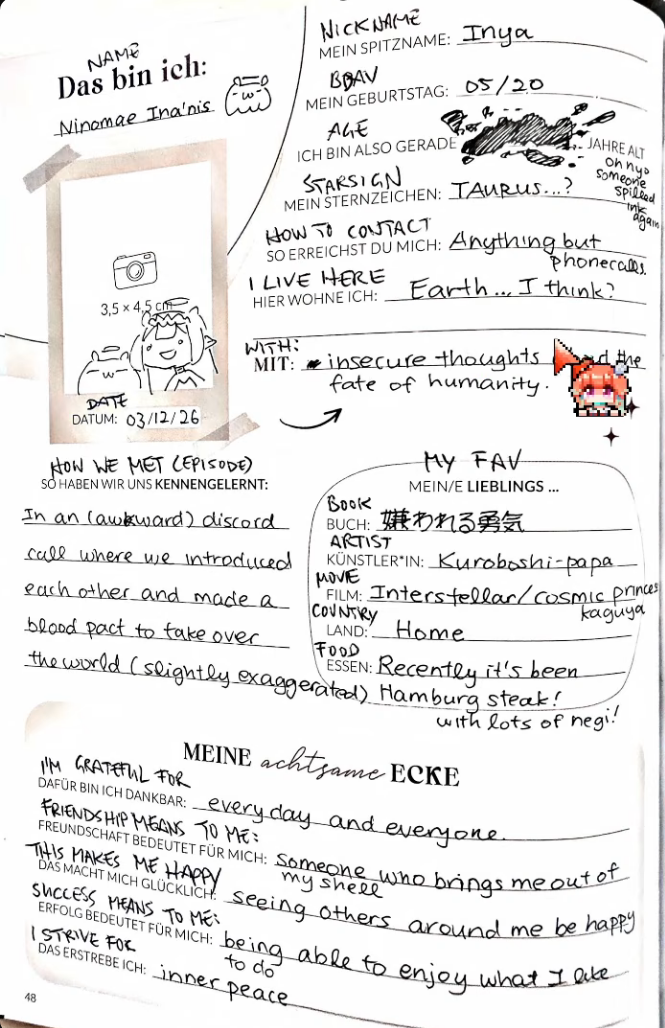 NAME
Das bin ich:
Ninomae Ina'nis
NICKNAME
MEIN SPITZNAME: Inya
BDAY
MEIN GEBURTSTAG: 05/20
AGE
ICH BIN ALSO GERADE JAHRE ALT
oh nyo
someone
spilled
ink
again
STARSIGN
MEIN STERNZEICHEN: TAURUS...?
HOW TO CONTACT
SO ERREICHST DU MICH: Anything but
phonecalls.
I LIVE HERE
HIER WOHNE ICH: Earth... I think?
WITH:
MIT: insecure thoughts the
fate of humanity.
3,5 x 4,5 cm
DATE
DATUM: 03/12/26
HOW WE MET (EPISODE)
SO HABEN WIR UNS KENNENGELERNT:
In an (awkward) discord
call where we introduced
each other and made a
blood pact to take over
the world (slightly exaggerated)
MY FAV
MEIN/E LIEBLINGS ...
BOOK
BUCH: 嫌われる勇気
ARTIST
KÜNSTLER*IN: Kuroboshi-papa
MOVIE
FILM: Interstellar/cosmic princess
kaguya
COUNTRY
LAND: Home
FOOD
ESSEN: Recently it's been
Hamburg steak!
with lots of negi!
MEINE achtsame ECKE
I'M GRATEFUL FOR
DAFÜR BIN ICH DANKBAR: every day and everyone.
FRIENDSHIP MEANS TO ME:
FREUNDSCHAFT BEDEUTET FÜR MICH: Someone who brings me out of
my shell
THIS MAKES ME HAPPY
DAS MACHT MICH GLÜCKLICH: seeing others around me be happy
SUCCESS MEANS TO ME:
ERFOLG BEDEUTET FÜR MICH: being able to enjoy what I like
to do
I STRIVE FOR
DAS ERSTREBE ICH: inner peace
48